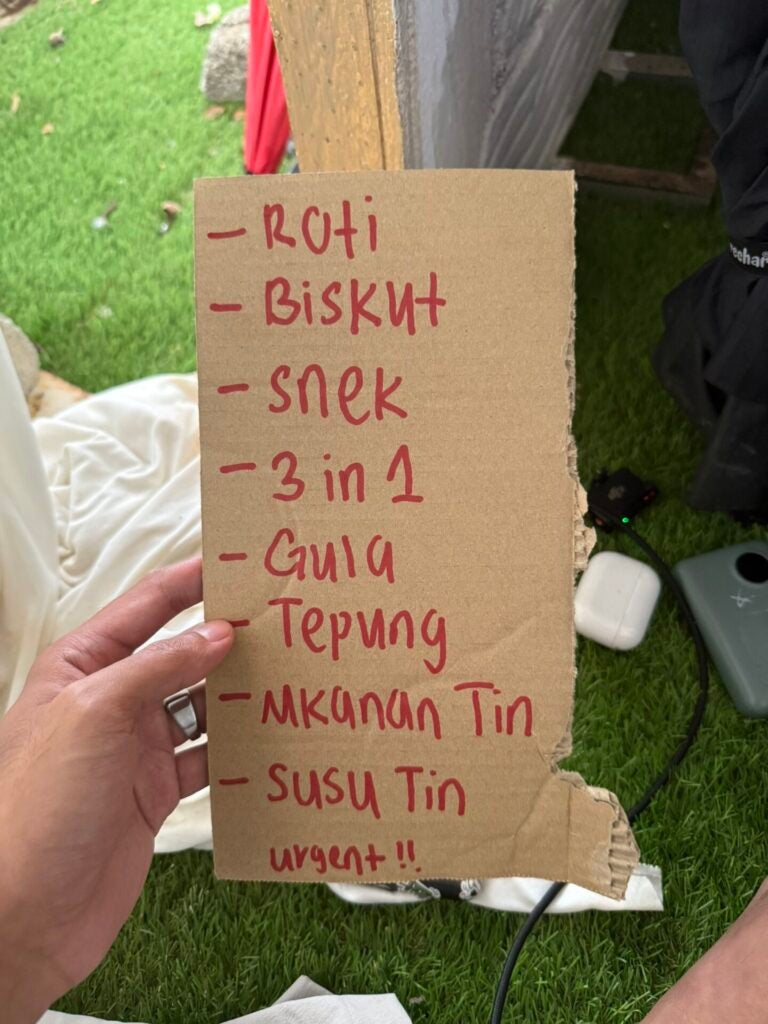 - Roti
- Biskut
- Snek
- 3 in 1
- Gula
- Tepung
- Mkanan Tin
- Susu Tin
urgent!!